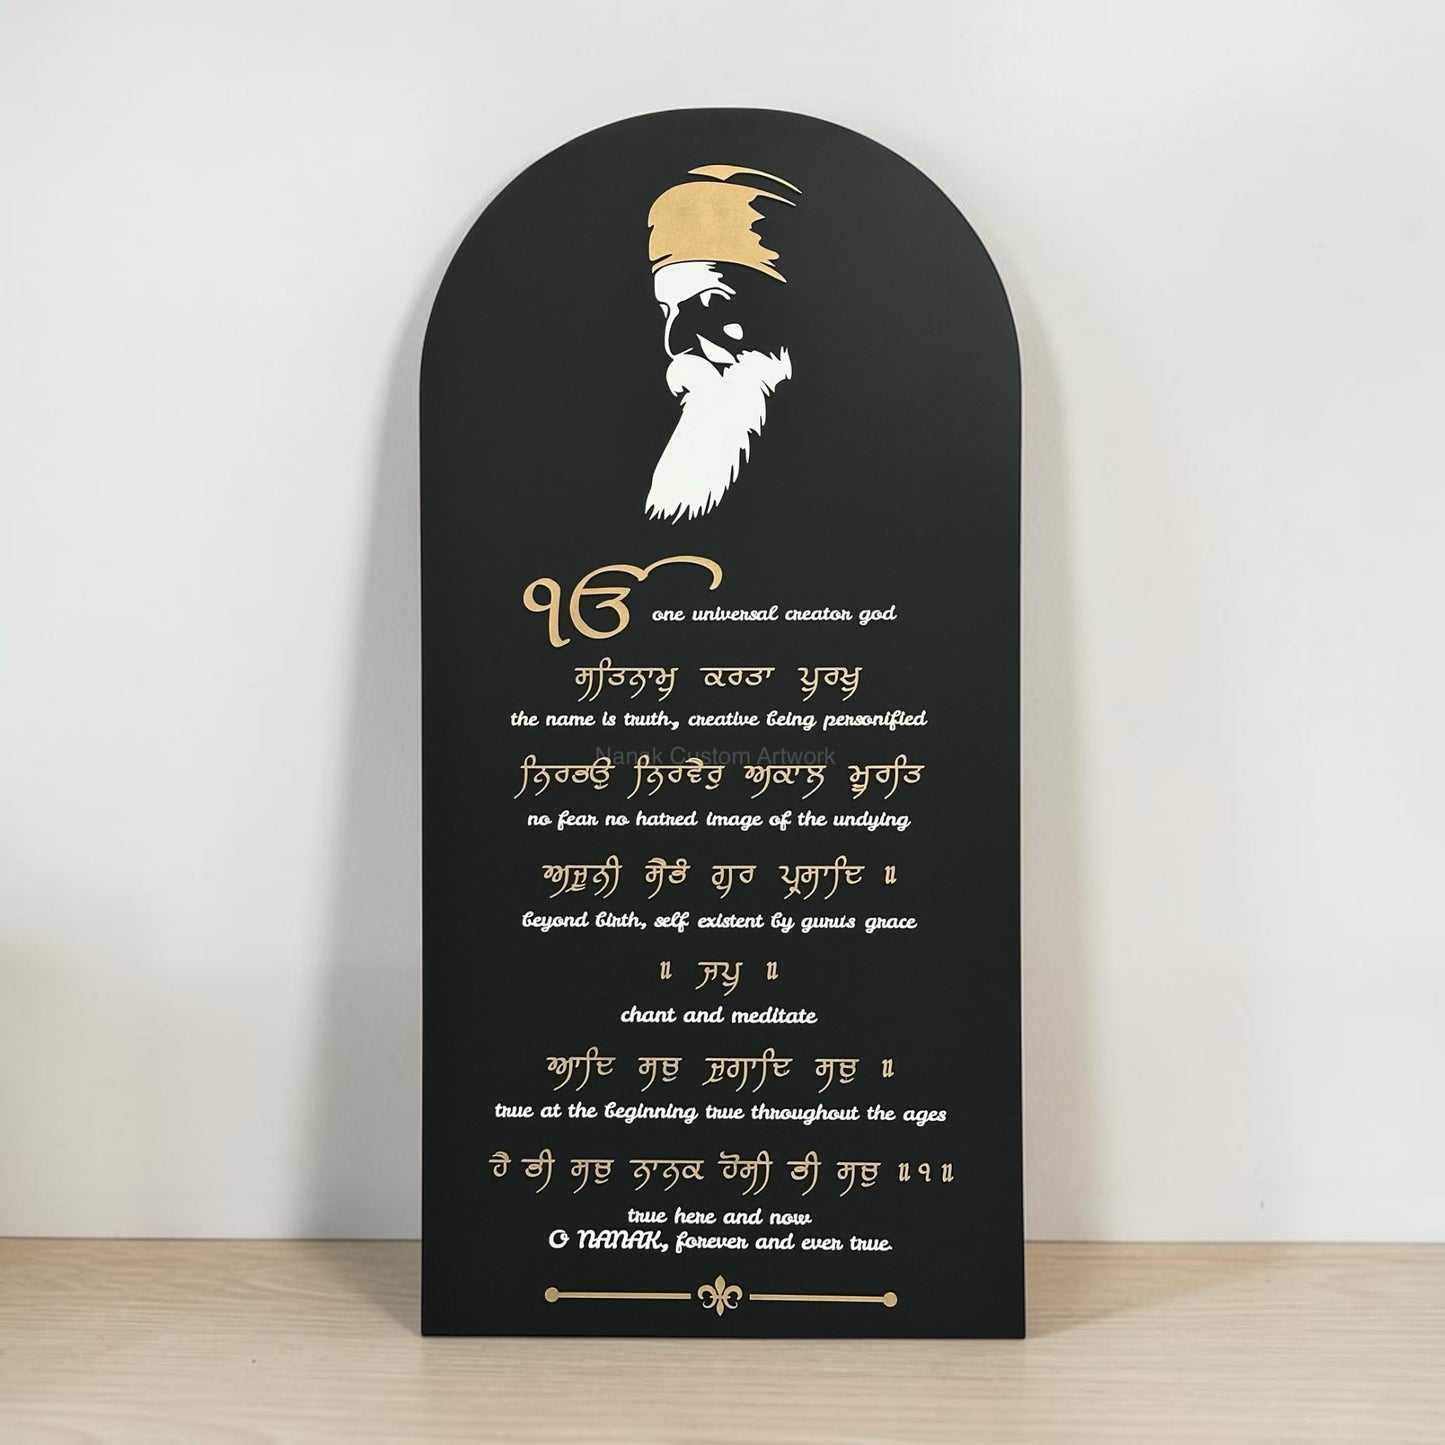 ੴ one universal creator god
ਸਤਿਨਾਮੁ ਕਰਤਾ ਪੁਰਖੁ
the name is truth, creative being personified
Nanak Custom Artwork
ਨਿਰਭਉ ਨਿਰਵੈਰੁ ਅਕਾਲ ਮੂਰਤਿ
no fear no hatred image of the undying
ਅਜੂਨੀ ਸੈਭੰ ਗੁਰ ਪ੍ਰਸਾਦਿ ॥
beyond birth, self existent by gurus grace
॥ ਜਪੁ ॥
chant and meditate
ਆਦਿ ਸਚੁ ਜੁਗਾਦਿ ਸਚੁ ॥
true at the beginning true throughout the ages
ਹੈ ਭੀ ਸਚੁ ਨਾਨਕ ਹੋਸੀ ਭੀ ਸਚੁ ॥੧॥
true here and now
O NANAK, forever and ever true.